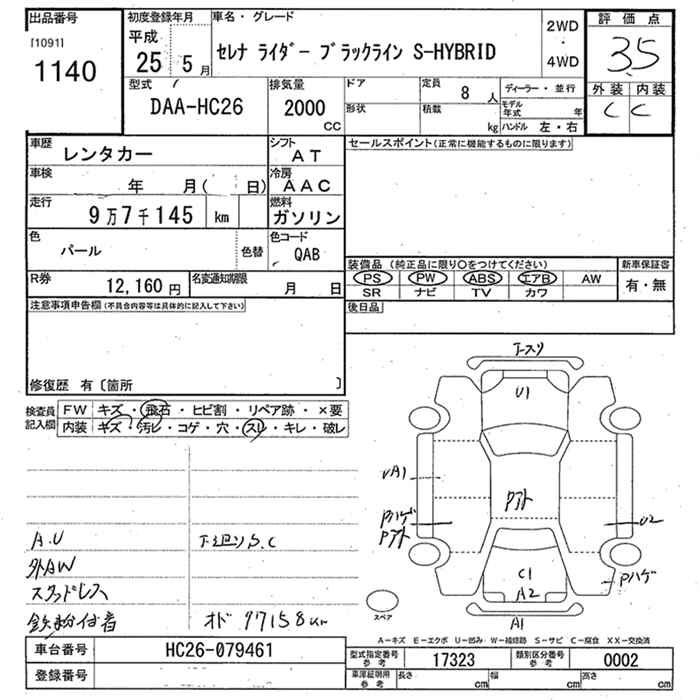 出品番号
[1091]
1140
初度登録年月
平成
25 5月
車名・グレード
セレナ ライダー ブラックライン S-HYBRID
2WD
4WD
評価点
3.5
外装 内装
C C
型式
DAA-HC26
排気量
2000
CC
ドア
形状
定員
8 人
積載
kg
ディーラー・並行
モデル年式 年
ハンドル 左・右
車歴
レンタカー
シフト
AT
車検
年 月( 日)
冷房
AAC
走行
9万7千145 km
燃料
ガソリン
色
パール
色替
色コード
QAB
R券
12,160 円
名変通知期限
月 日
セールスポイント(正常に機能するものに限ります)
装備品 (純正品に限り○をつけてください)
新車保証書
PS PW ABS エアB AW
有・無
SR ナビ TV カワ
後日品
注意事項申告欄(不具合内容等は具体的に記入して下さい)
修復歴 有〔箇所 〕
検査員記入欄
FW キズ・飛石・ヒビ割・リペア跡・×要
内装 キズ・汚レ・コゲ・穴・スレ・キレ・破レ
A.U
下廻りS.C
外AW
スタッドレス
鉄粉付着
オド 97158km
エースリ
U1
A1
Pアト
Pハゲ
Pアト
U2
C1
A2
Pハゲ
A1
スペア
A-キズ E-エクボ U-凹み W-補修跡 S-サビ C-腐食 XX-交換済
車台番号
HC26-079461
登録番号
型式指定番号 参考
17323
類別区分番号 参考
0002
車庫証明用 参考
長さ cm
幅 cm
高さ cm